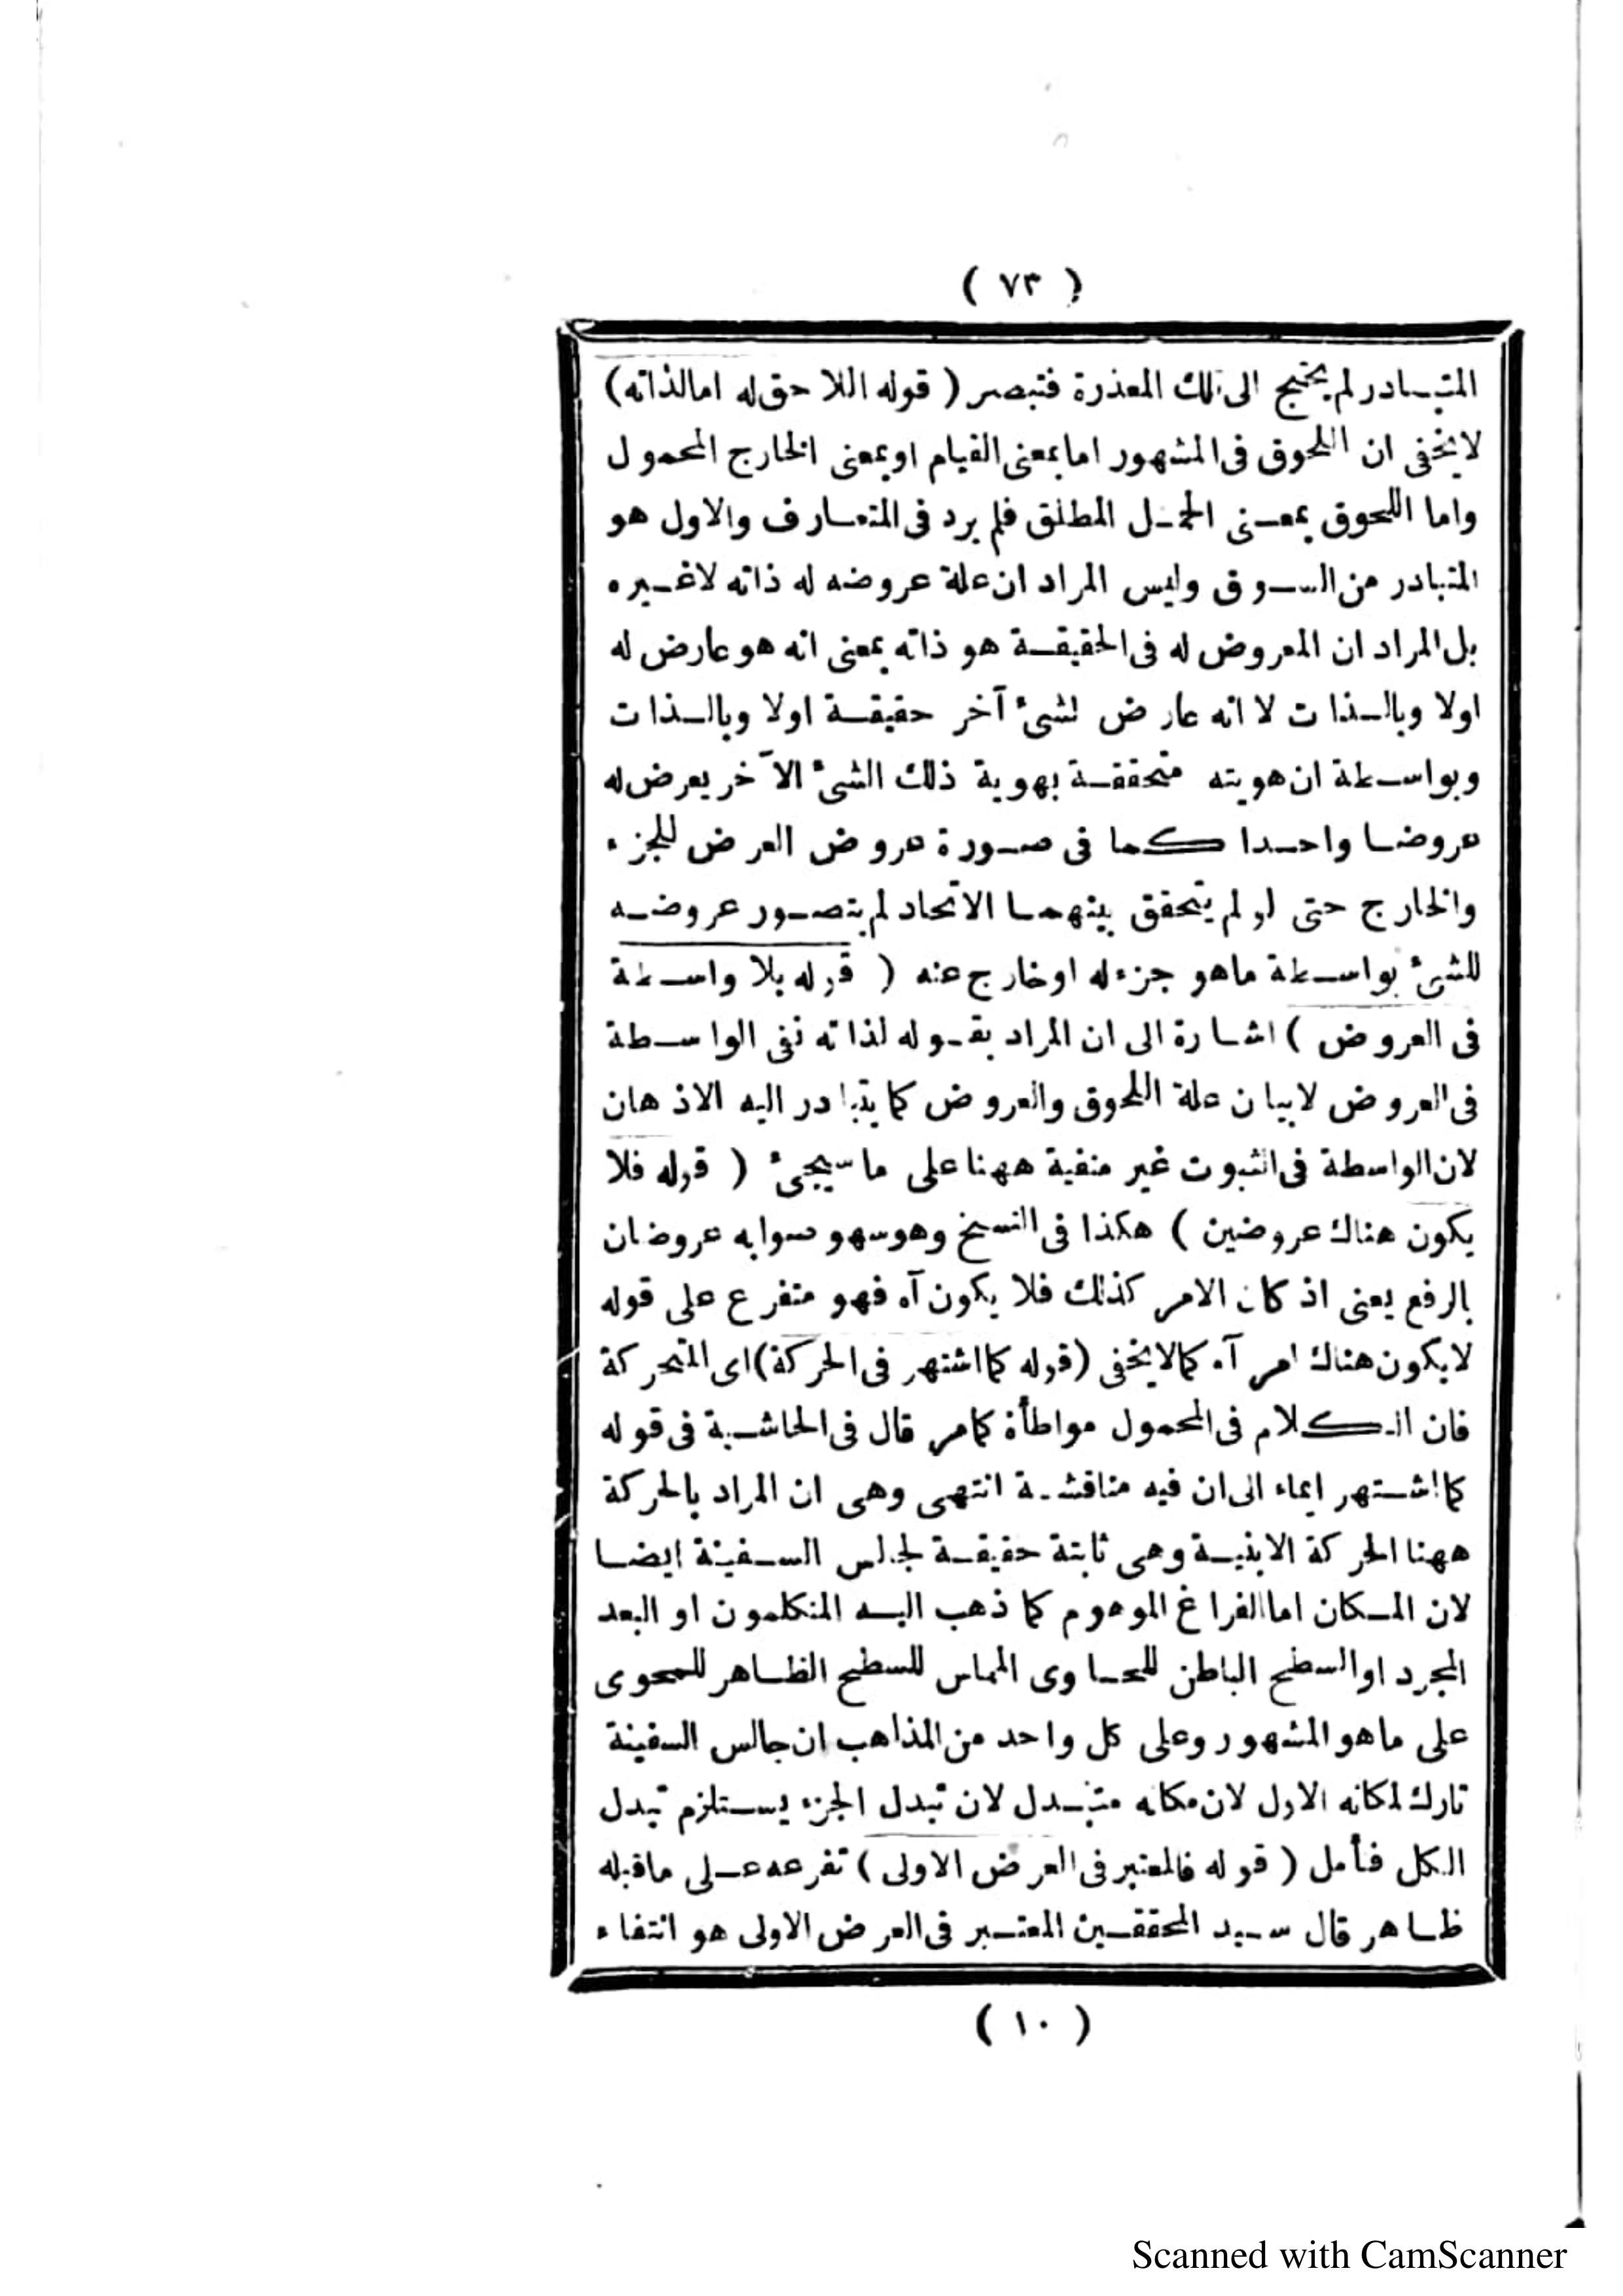 ( ٧٣ )
المتبادر لم يحتج الى تلك المعذرة فتبصر ( قوله اللاحق له اما لذاته )
لا يخفى ان اللحوق فى المشهور اما بمعنى القيام او بمعنى الخارج المحمول
واما اللحوق بمعنى الحمل المطلق فلم يرد فى المتعارف والاول هو
المتبادر من السوق وليس المراد ان علة عروضه له ذاته لا غيره
بل المراد ان المعروض له فى الحقيقة هو ذاته بمعنى انه هو عارض له
اولا وبالذات لا انه عارض لشئ آخر حقيقة اولا وبالذات
وبواسطة ان هويته متحققة بهوية ذلك الشئ الآخر يعرض له
عروضا واحدا كما فى صورة عروض العرض للجزء
والخارج حتى لو لم يتحقق بينهما الاتحاد لم يتصور عروضه
للشئ بواسطة ما هو جزء له او خارج عنه ( قوله بلا واسطة
فى العروض ) اشارة الى ان المراد بقوله لذاته نفى الواسطة
فى العروض لا بيان علة اللحوق والعروض كما يتبادر اليه الاذهان
لان الواسطة فى الثبوت غير منفية ههنا على ما سيجئ ( قوله فلا
يكون هناك عروضين ) هكذا فى النسخ وهو سهو صوابه عروضان
بالرفع يعنى اذ كان الامر كذلك فلا يكون آه فهو متفرع على قوله
لا يكون هناك امر آه كما لا يخفى ( قوله كما اشتهر فى الحركة ) اى المتحركة
فان الكلام فى المحمول مواطأة كما مر قال فى الحاشية فى قوله
كما اشتهر ايماء الى ان فيه مناقشة انتهى وهى ان المراد بالحركة
ههنا الحركة الاينية وهى ثابتة حقيقة لجالس السفينة ايضا
لان المكان اما الفراغ الموهوم كما ذهب اليه المتكلمون او البعد
المجرد او السطح الباطن للحاوى المماس للسطح الظاهر للمحوى
على ما هو المشهور وعلى كل واحد من المذاهب ان جالس السفينة
تارك لمكانه الاول لان مكانه متبدل لان تبدل الجزء يستلزم تبدل
الكل فتأمل ( قوله فالمعتبر فى العرض الاولى ) تفرعه على ما قبله
ظاهر قال سيد المحققين المعتبر فى العرض الاولى هو انتفاء
( ١٠ )
Scanned with CamScanner